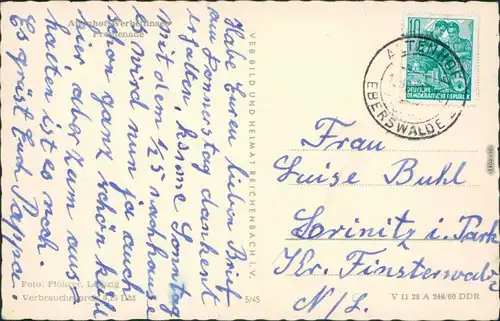 Altenhof Werbellinsee
Promenade
Habe Euren lieben Brief
am Donnerstag dankent
erhalten, komme Sonntag
mit dem 1/2 5 nachhause
es wird nun ja auch
schon ganz schön kühl
hier aber zum aus
halten ist es noch.
Es grüst Euch Pappa
Foto: Flohrer, Leipzig
Verbraucherpreis 0,15 DM
VEB BILD UND HEIMAT REICHENBACH I. V.
5/45
10
DEUTSCHE
DEMOKRATISCHE REPUBLIK
ALTENHOF
EBERSWALDE
Frau
Luise Buhl
Sorinitz i. Park
Kr. Finsterwalde
N/L.
V 11 28 A 246/60 DDR